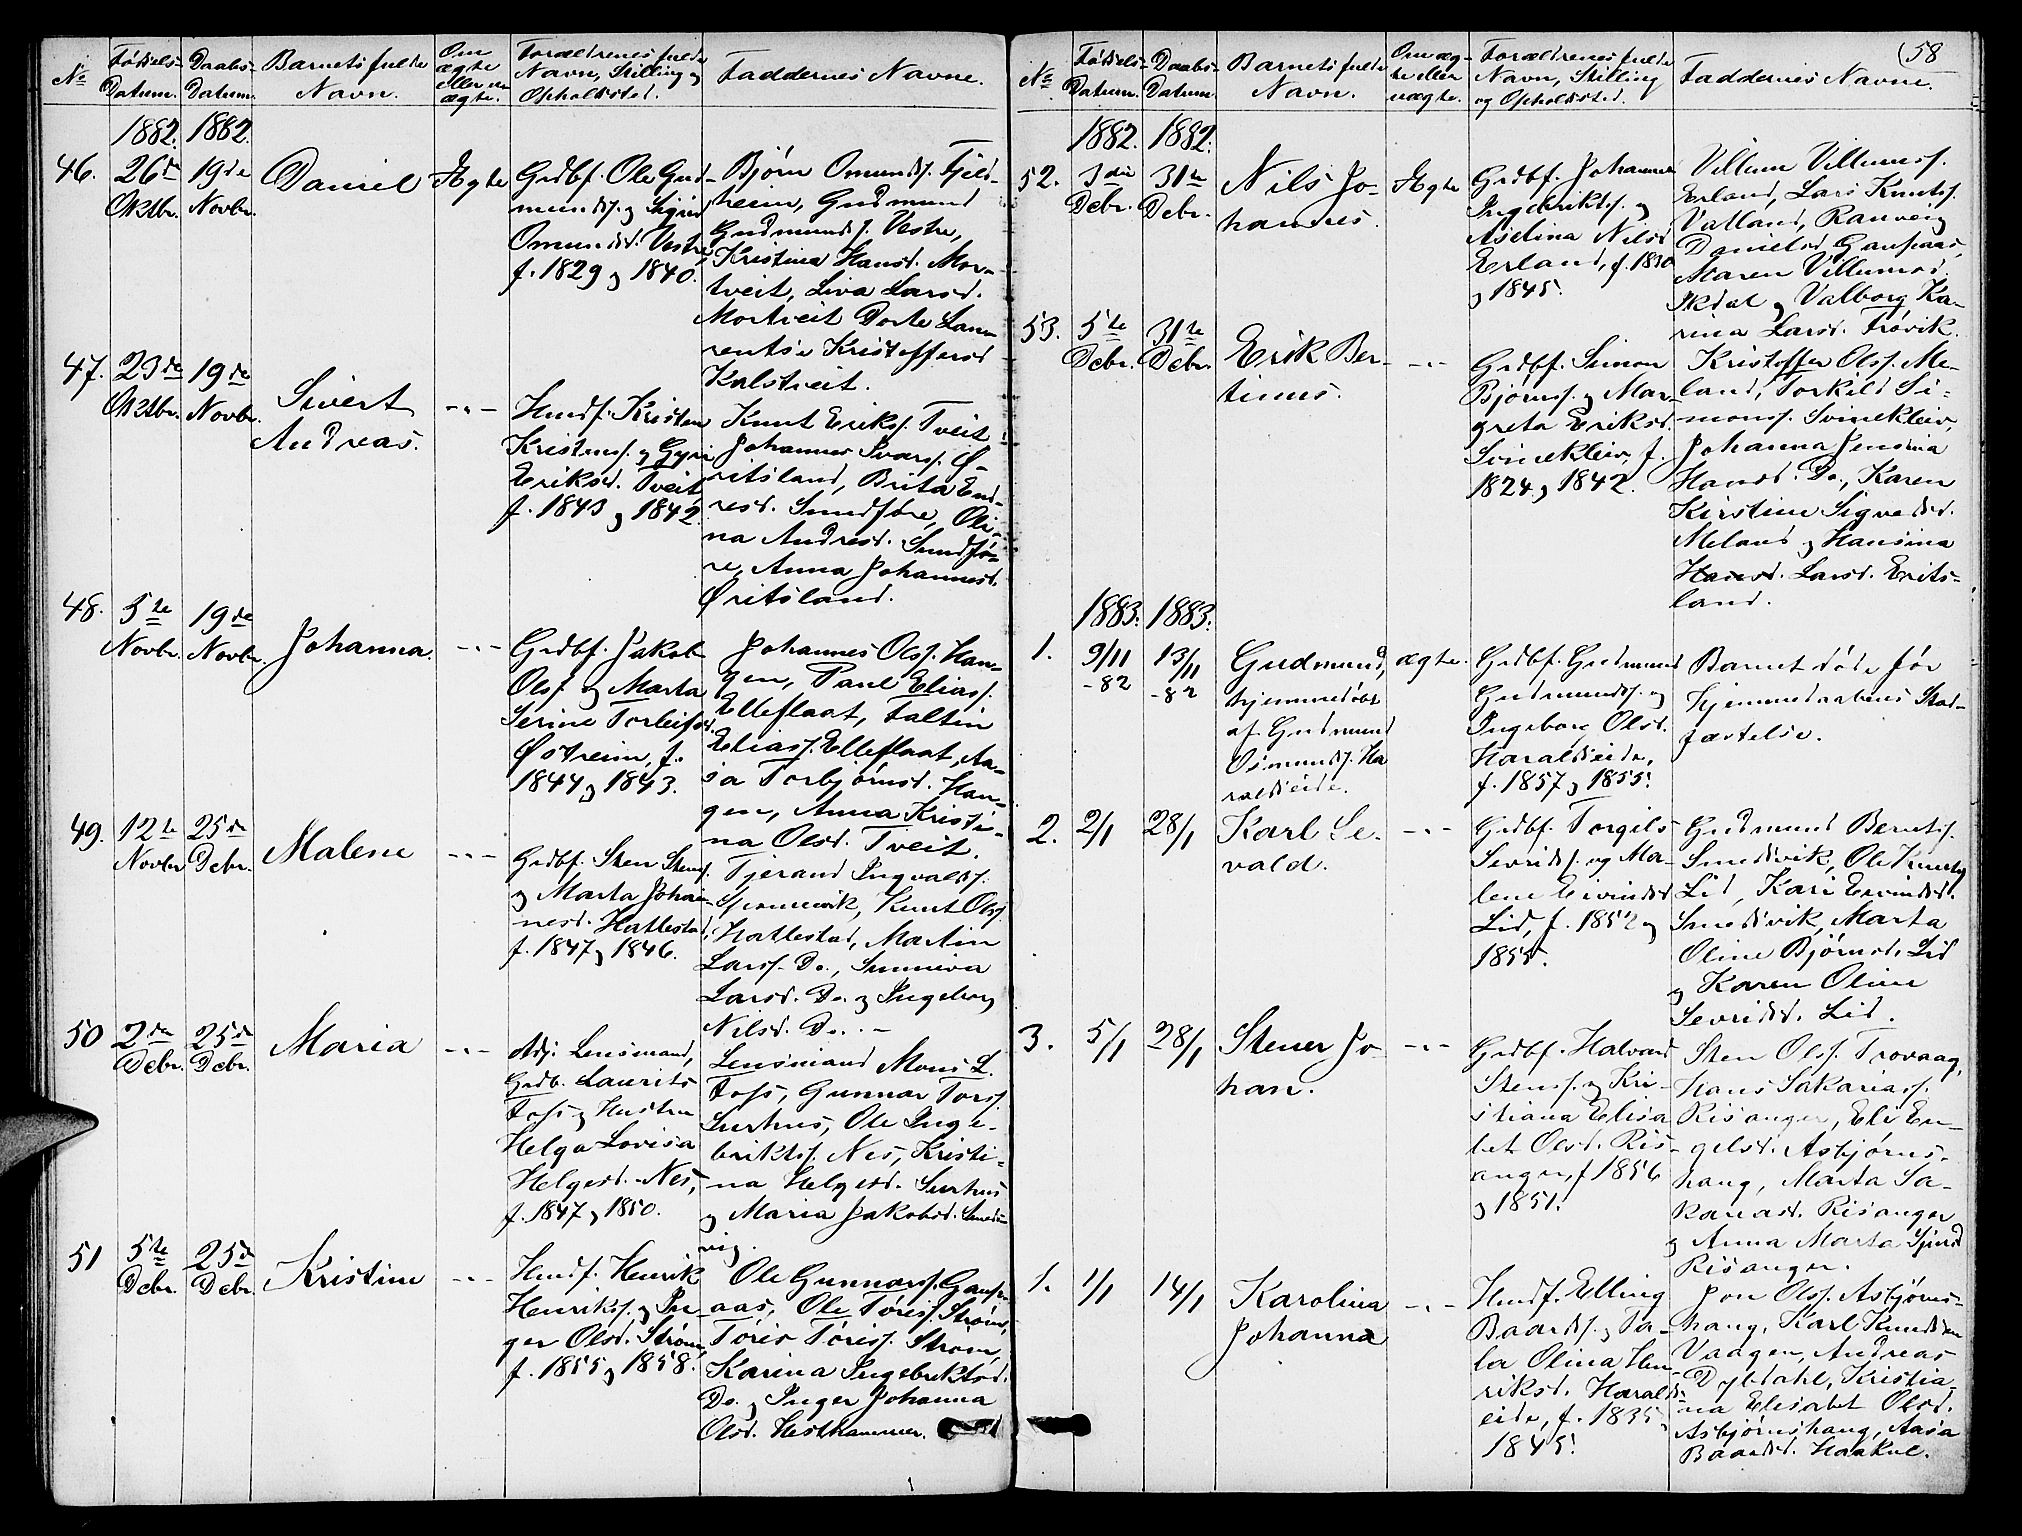 58
No
Fødsels-
Datum.
Daabs-
Datum.
Barnets fulde
Navn.
Om
ægte
eller u-
ægte.
Forældrenes fulde
Navn, Stilling og
Opholdssted.
Faddernes Navne.
1882. 1882.
46.
26de
Oktbr.
19de
Novbr.
Daniel
Ægte
Grdbf. Ole Gud-
mundsf. og Sigrid
Omundsd. Vestre,
f. 1829 og 1840.
Bjørn Omundsf. Fjeld-
heim, Gudmund
Gudmundsf. Vestre,
Kristina Hansd. Mor-
tveit, Liva Larsd.
Mortveit, Dorte Lau-
rentse Kristoffersd.
Kalstveit.
47.
23de
Oktbr.
19de
Novbr.
Sivert
Andreas.
-"-
Husmf. Kristen
Kristensf. og Gyri
Eriksd. Tveit,
f. 1843 og 1842.
Knut Eriksf. Tveit,
Johannes Ivarsf. Ø-
ritsland, Brita End-
resd. Sundføre, Oli-
na Andresd. Sundfø-
re, Anna Johannesd.
Øritsland.
48.
5te
Novbr.
19de
Novbr.
Johanna.
-"-
Grdbf. Jakob
Olsf. og Marta
Serine Torleifsd.
Østreim, f.
1844 og 1843.
Johannes Olsf. Hau-
gen, Paul Eliasf.
Elleflaat, Faltin
Eliasf. Elleflaat, Aa-
sa Torbjørnsd. Hau-
gen, Anna Kristi-
na Olsd. Tveit.
49.
12te
Novbr.
25de
Debr.
Malene
-"-
Grdbf. Sten Stensf.
og Marta Johan-
nesd. Hatlestad,
f. 1847 og 1846.
Tjerand Ingvaldsf.
Hatlestad, Martin
Larsf. Do., Sunniva
Larsd. Do. og Ingeborg
Nilsd. Do. -
50
2den
Debr.
25de
Debr.
Maria
-"-
Adj. Lensmand,
Grdb. Laurits
Foss og Hustru
Helga Lovisa
Helgesd. Nes,
f. 1847 og 1850.
Lensmand Mons L.
Foss, Gunnar Torsf.
Surhus, Ole Inge-
briktsf. Nes, Kristi-
na Helgesd. Surhus
og Maria Jakobsd. Smeds-
vig.
51
5te
Debr.
25de
Debr.
Kristine
-"-
Husmf. Henrik
Henriksf. og In-
ger Olsd. Strøm,
f. 1855 og 1858.
Ole Gunnarsf. Gaupe-
aas, Ole Tørisf. Strøm,
Tøris Tørisf. Strøm,
Karina Ingebriktsd.
Do. og Inger Johanna
Olsd. Hesthammer.
No
Fødsels-
Datum.
Daabs-
Datum.
Barnets fulde
Navn.
Om æg-
te eller
uægte.
Forældrenes fulde
Navn, Stilling
og Opholdssted.
Faddernes Navne.
1882. 1882.
52.
3die
Debr.
31te
Debr.
Nils Jo-
hannes.
Ægte
Grdbf. Johannes
Ingebriktsf. og
Aselina Nilsd.
Erland, f. 1830
og 1845.
Villum Villumsf.
Erland, Lars Knutsf.
Vatland, Ranveig
Danielsd. Gaupaas,
Maren Villumsd.
Økdal og Valborg Ka-
rina Larsd. Trøvik.
53.
5te
Debr.
31te
Debr.
Erik Ber-
tinus.
-"-
Grdbf. Simon
Bjørnsf. og Mar-
greta Eriksd.
Svinekleiv, f.
1824 og 1842.
Kristoffer Olsf. Me-
land, Torkild Si-
monsf. Svinekleiv,
Johanna Jensina
Hansd. Do., Karen
Kirstine Sigvedsd.
Meland og Hansina
Hansd. Larsd. Erits-
land.
1883. 1883.
1.
9/11
-82
13/11
-82
Gudmund,
hjemmedøbt
af Gudmund
Osmundsf. Ha
raldseide.
ægte.
Grdbf. Gudmund
Gudmundsf. og
Ingeborg Olsd.
Haraldseide,
f. 1857 og 1855.
Barnet døde før
Hjemmedaabens Stad-
fæstelse.
2.
2/1
28/1
Karl Se-
vald.
-"-
Grdbf. Torgils
Sevridsf. og Ma-
lene Eivindsd.
Lid, f. 1852 og
1855.
Gudmund Berntsf.
Smedsvik, Ole Knutsf.
Lid, Kari Eivindsd.
Smedsvik, Marta
Oline Bjørnsd. Lid
og Karen Oline
Sevridsd. Lid.
3.
5/1
28/1
Stener Jo-
han.
-"-
Grdbf. Halvard
Stensf. og Kri-
stiana Elisa
bet Olsd. Ris-
anger, f. 1856
og 1851.
Sten Olsf. Trovaag,
Hans Sakariasf.
Risanger, Eli En-
gelsd. Asbjørns-
haug, Marta Sa-
kariasd. Risanger
og Anna Marta Sjursd.
Risanger.
1.
1/1
14/1
Karolina
Johanna
-"-
Husmf. Elling
Baardsf. og Ta-
la Olina Hen-
riksd. Haralds-
eide, f. 1835 og
1845.
Jon Olsf. Asbjørns-
haug, Karl Knudsen
Vaagen, Andreas
Dybdahl, Kristia-
na Elisabet Olsd.
Asbjørnshaug, Aasa
Baardsd. Haakul.